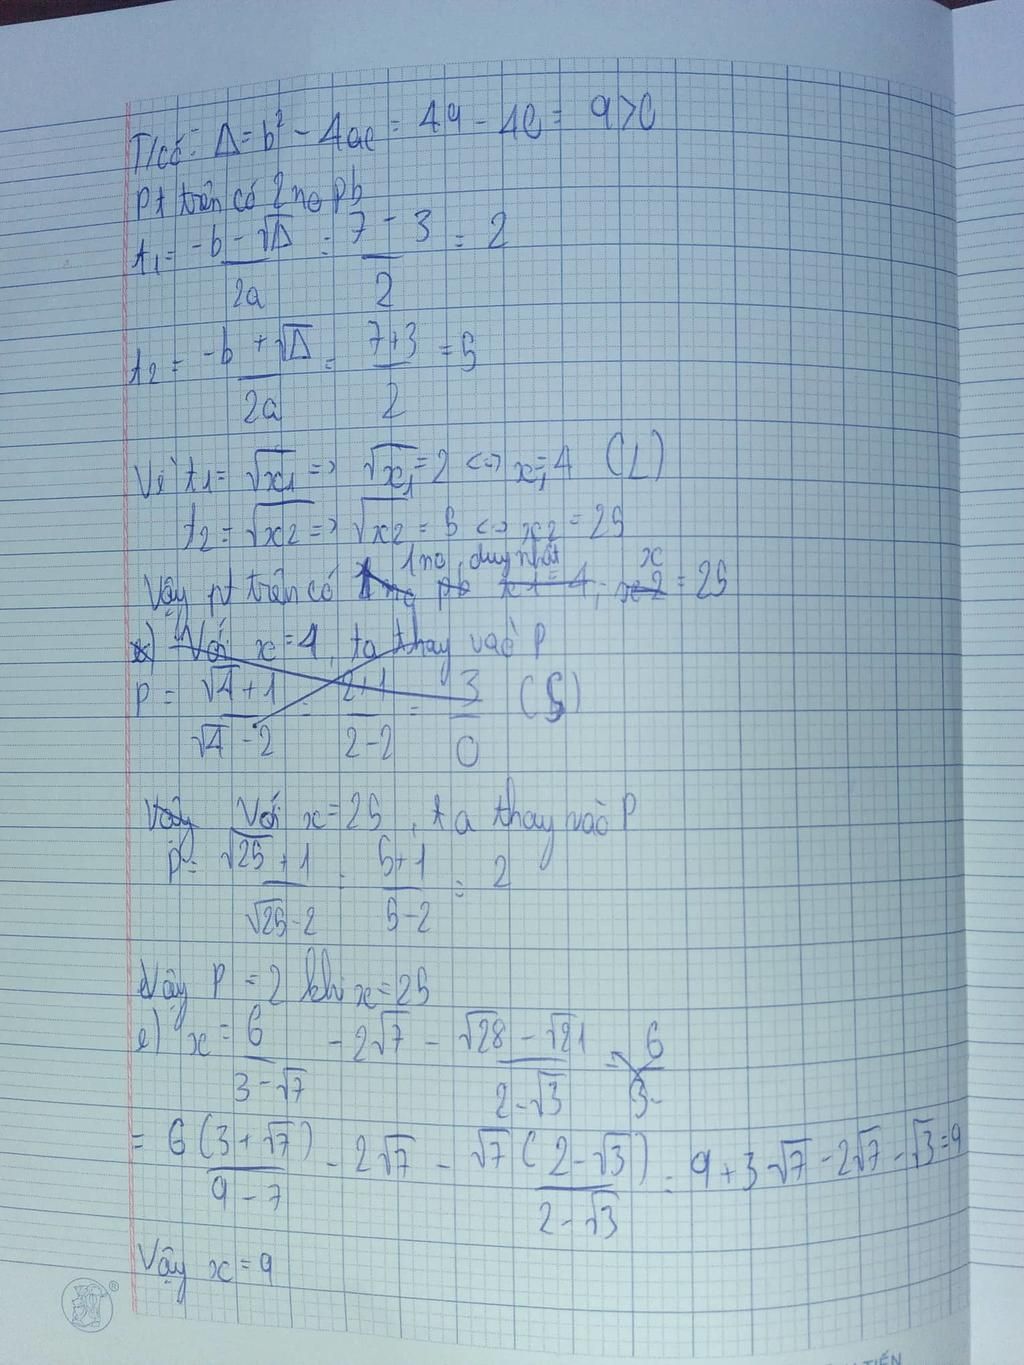 T/có: Δ = b² - 4ac = 49 - 40 = 9 > 0
Pt trên có 2 no pb
t₁ = (-b - √Δ)/2a = (7 - 3)/2 = 2
t₂ = (-b + √Δ)/2a = (7+3)/2 = 5
Vì t₁ = √x₁ => √x₁ = 2 <=> x₁ = 4 (L)
t₂ = √x₂ => √x₂ = 5 <=> x₂ = 25
1 no duy nhất x
Vậy pt trên có no pb x1 = 4, x2 = 25
Với x = 4, ta thay vào P
P = (√4 + 1)/(√4 - 2) = (2+1)/(2-2) = 3/0
Vậy Với x = 25, ta thay vào P
P = (√25 + 1)/(√25 - 2) = (5+1)/(5-2) = 2
Vậy P = 2 khi x = 25
e) x = 6/(3 - √7) - 2√7 - (√28 - √21)/(2 - √3) = 6/3-
= 6(3 + √7)/(9 - 7) - 2√7 - √7(2 - √3)/(2 - √3) = 9 + 3√7 - 2√7 - √3 = 9
Vậy x = 9
®
TIẾN